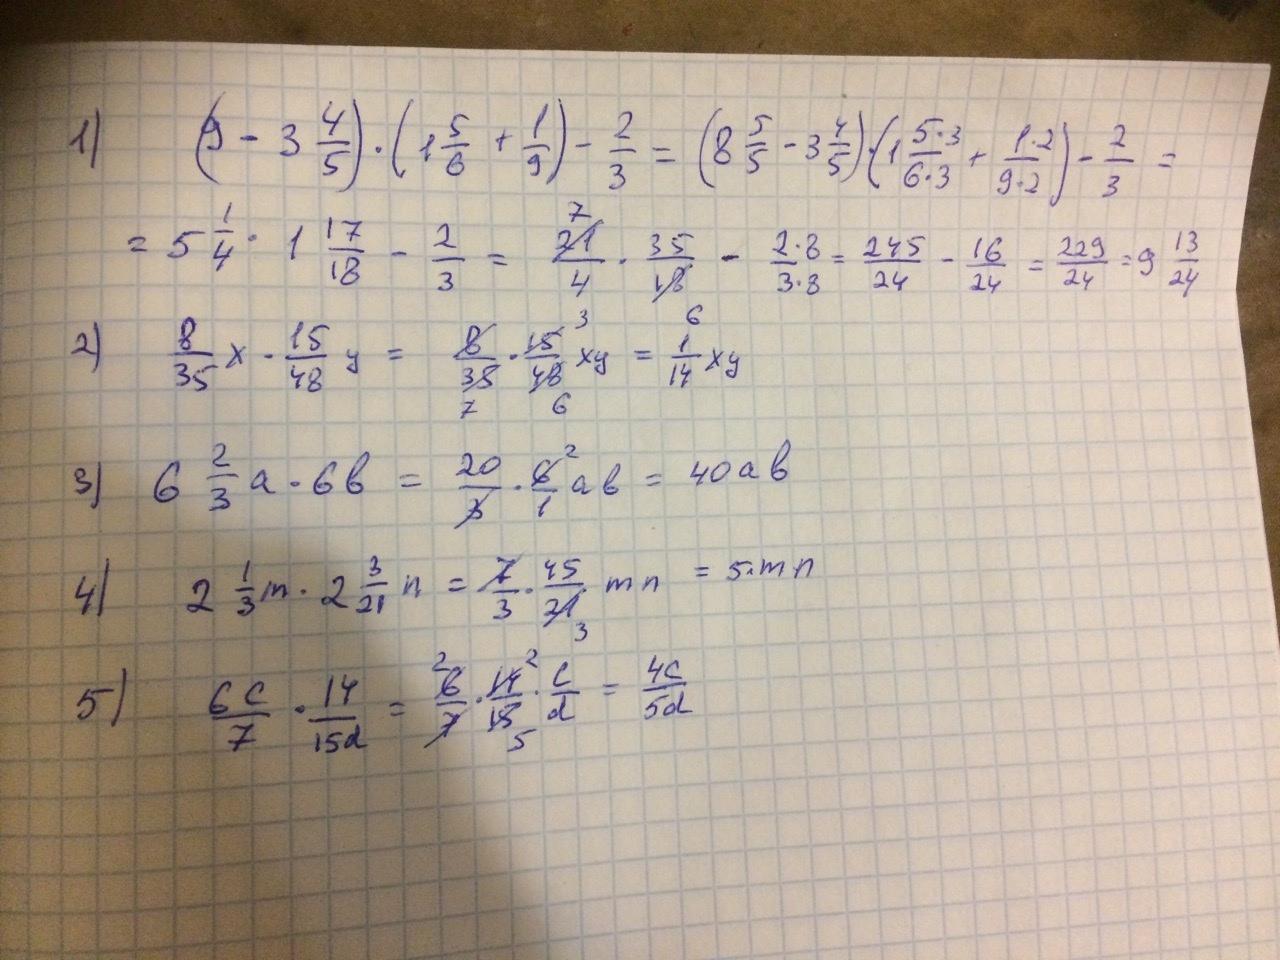 1) (9 - 3 4/5) · (1 5/6 + 1/9) - 2/3 = (8 5/5 - 3 4/5) · (1 5·3/6·3 + 1·2/9·2) - 2/3 =
= 5 1/4 · 1 17/18 - 2/3 = 7 21/4 · 35/18 6 - 2·8/3·8 = 245/24 - 16/24 = 229/24 = 9 13/24
2) 8/35 x · 15/48 y = 8/35 7 · 15 3/48 6 xy = 1/14 xy
3) 6 2/3 a · 6b = 20/3 · 6 2/1 ab = 40ab
4) 2 1/3 m · 2 3/21 n = 7/3 · 45/21 3 mn = 5·mn
5) 6c/7 · 14/15d = 2 6/7 · 14 2/15 5 · c/d = 4c/5d